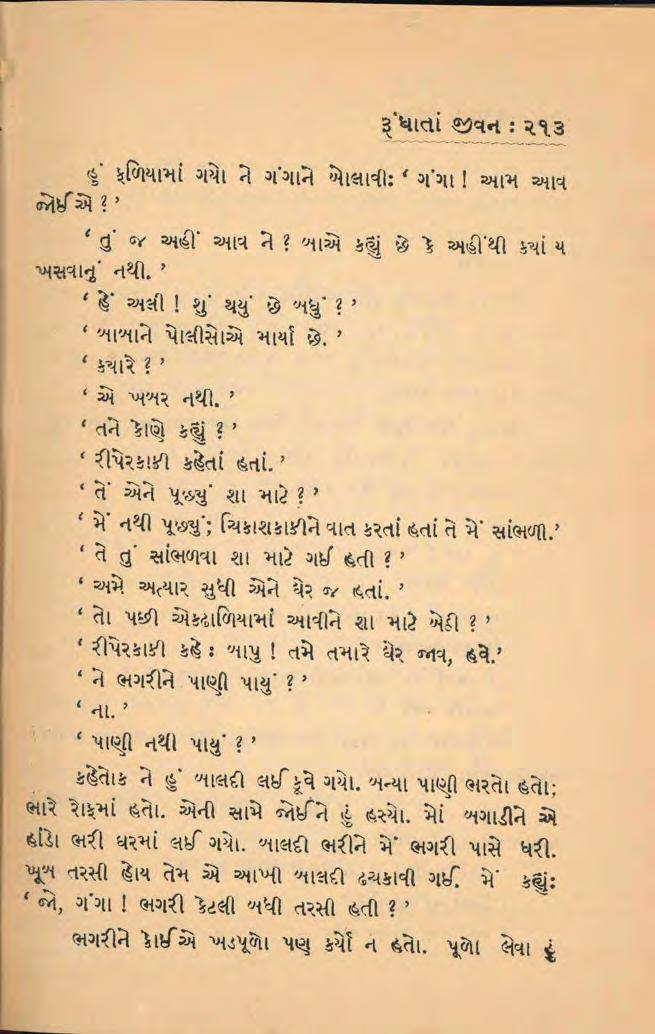 રૂંધાતાં જીવન : ૨૧૩
હું ફળિયામાં ગયો ને ગંગાને બોલાવી: ‘ ગંગા ! આમ આવ
જોઈએ ? ’
‘ તું જ અહીં આવ ને ? બાએ કહ્યું છે કે અહીંથી કયાં ય
ખસવાનું નથી. ’
‘ હેં અલી ! શું થયું છે બધું ? ’
‘ બાબાને પોલીસોએ માર્યા છે. ’
‘ કયારે ? ’
‘ એ ખબર નથી. ’
‘ તને કોણે કહ્યું ? ’
‘ રીપેરકાકી કહેતાં હતાં. ’
‘ તેં એને પૂછયું શા માટે ? ’
‘ મેં નથી પૂછયું; ચિકાશકાકીને વાત કરતાં હતાં તે મેં સાંભળી.’
‘ તે તું સાંભળવા શા માટે ગઈ હતી ? ’
‘ અમે અત્યાર સુધી એને ઘેર જ હતાં. ’
‘ તો પછી એકઢાળિયામાં આવીને શા માટે બેઠી ? ’
‘ રીપેરકાકી કહે : બાપુ ! તમે તમારે ઘેર જાવ, હવે.’
‘ ને ભગરીને પાણી પાયું ? ’
‘ ના. ’
‘ પાણી નથી પાયું ? ’
કહેતોક ને હું બાલદી લઈ કૂવે ગયો. બન્યા પાણી ભરતો હતો;
ભારે રોફમાં હતો. એની સામે જોઈને હું હસ્યો. મોં બગાડીને એ
હાંડો ભરી ઘરમાં લઈ ગયો. બાલદી ભરીને મેં ભગરી પાસે ધરી.
ખૂબ તરસી હોય તેમ એ આખી બાલદી ઢચકાવી ગઈ. મેં કહ્યું:
‘ જો, ગંગા ! ભગરી કેટલી બધી તરસી હતી ? ’
ભગરીને કોઈએ ખડપૂળો પણ કર્યો ન હતો. પૂળો લેવા હું